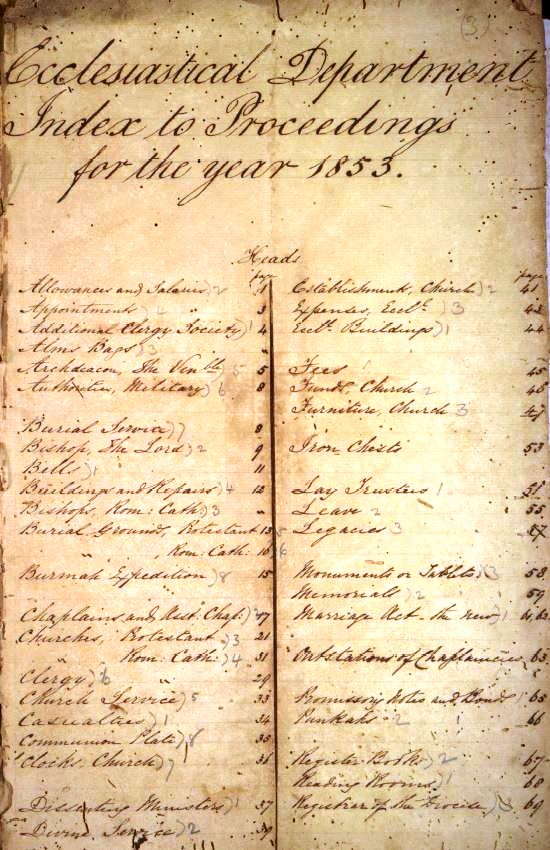 (3)
Ecclesiastical Department
Index to Proceedings
for the year 1853.
Heads
page
Allowances and Salaries) 2 1
Appointments) 4 3
Additional Clergy Society) 1 4
Alms Bags) 3 "
Archdeacon, The Ven'ble 5 5
Authorities, Military) 6 8
Burial Service) 7 8
Bishop, The Lord) 2 9
Bells) 1 11
Buildings and Repairs) 4 12
Bishops, Rom: Cath) 3 "
Burial Grounds, Protestant 13 5
" , Rom: Cath: 16 6
Burmah Expedition) 8 15
Chaplains and Asst. Chap:) 2 17
Churches, Protestant) 3 21
" Rom: Cath:) 4 31
Clergy) 6 29
Church Service) 5 33
Casualties) 1 34
Communion Plate) 8 35
Clocks, Church) 7 36
Dissenting Ministers) 1 37
Divine Service) 2 39
page
Establishments, Church) 2 41
Expenses, Eccl. ) 3 43
Eccl. Buildings) 1 44
Fees 1 45
Funds, Church 2 46
Furniture, Church 3 47
Iron Chests 53
Lay Trustees 1
Leave 2 55
Legacies 3 57
Monuments or Tablets) 3 58
Memorials) 2 59
Marriage Act, the new) 1 61, 62
Outstations of Chaplaincies, 63
Promissory Notes and Bonds 1 65
Punkahs 2 66
Register Books) 2 67
Reading Rooms) 1 68
Registrar of the Diocese) 3 69